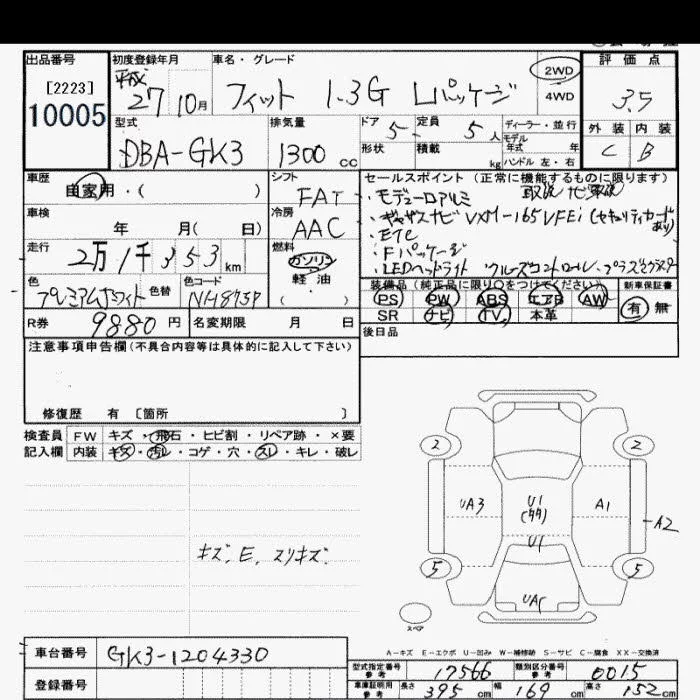 出品番号
[2223]
10005
初度登録年月
平成
27 10月
車名・グレード
フィット 1.3G Lパッケージ
2WD
4WD
評価点
3.5
外装 内装
C B
型式
DBA-GK3
排気量
1300 cc
ドア
5
定員
5 人
ディーラー・並行
形状
積載
kg
モデル年式 年
ハンドル 左・右
車歴
自家用・( )
シフト
FAT
セールスポイント (正常に機能するものに限ります)
・モデューロアルミ 取説
・ギャザズナビ VXM-165VFEi (セキュリティカードあり)
・ETC
・Fパッケージ
・LEDヘッドライト クルーズコントロール
車検
年 月( 日)
冷房
AAC
走行
2万1千353km
燃料
ガソリン
軽油
( )
色
プレミアム ホワイト
色替
色コード
NH875P
装備品 (純正品に限り○をつけてください)
PS PW ABS エアB AW
SR ナビ TV 本革
新車保証書
有 無
R券
9880円
名変期限 月 日
後日品
注意事項申告欄(不具合内容等は具体的に記入して下さい)
修復歴 有 〔箇所 〕
検査員記入欄
FW キズ・飛石・ヒビ割・リペア跡・×要
内装 キズ・汚レ・コゲ・穴・スレ・キレ・破レ
キズ、E、スリキズ
2 2
UA3 U1 A1
U1
A2
5 5
UAC
スペア
A-キズ E-エクボ U-凹み W-補修跡 S-サビ C-腐食 XX-交換済
車台番号
GK3-1204330
登録番号
型式指定番号 参考
17566
類別区分番号 参考
0015
車庫証明用 参考
長さ 395 cm 幅 169 cm 高さ 152 cm